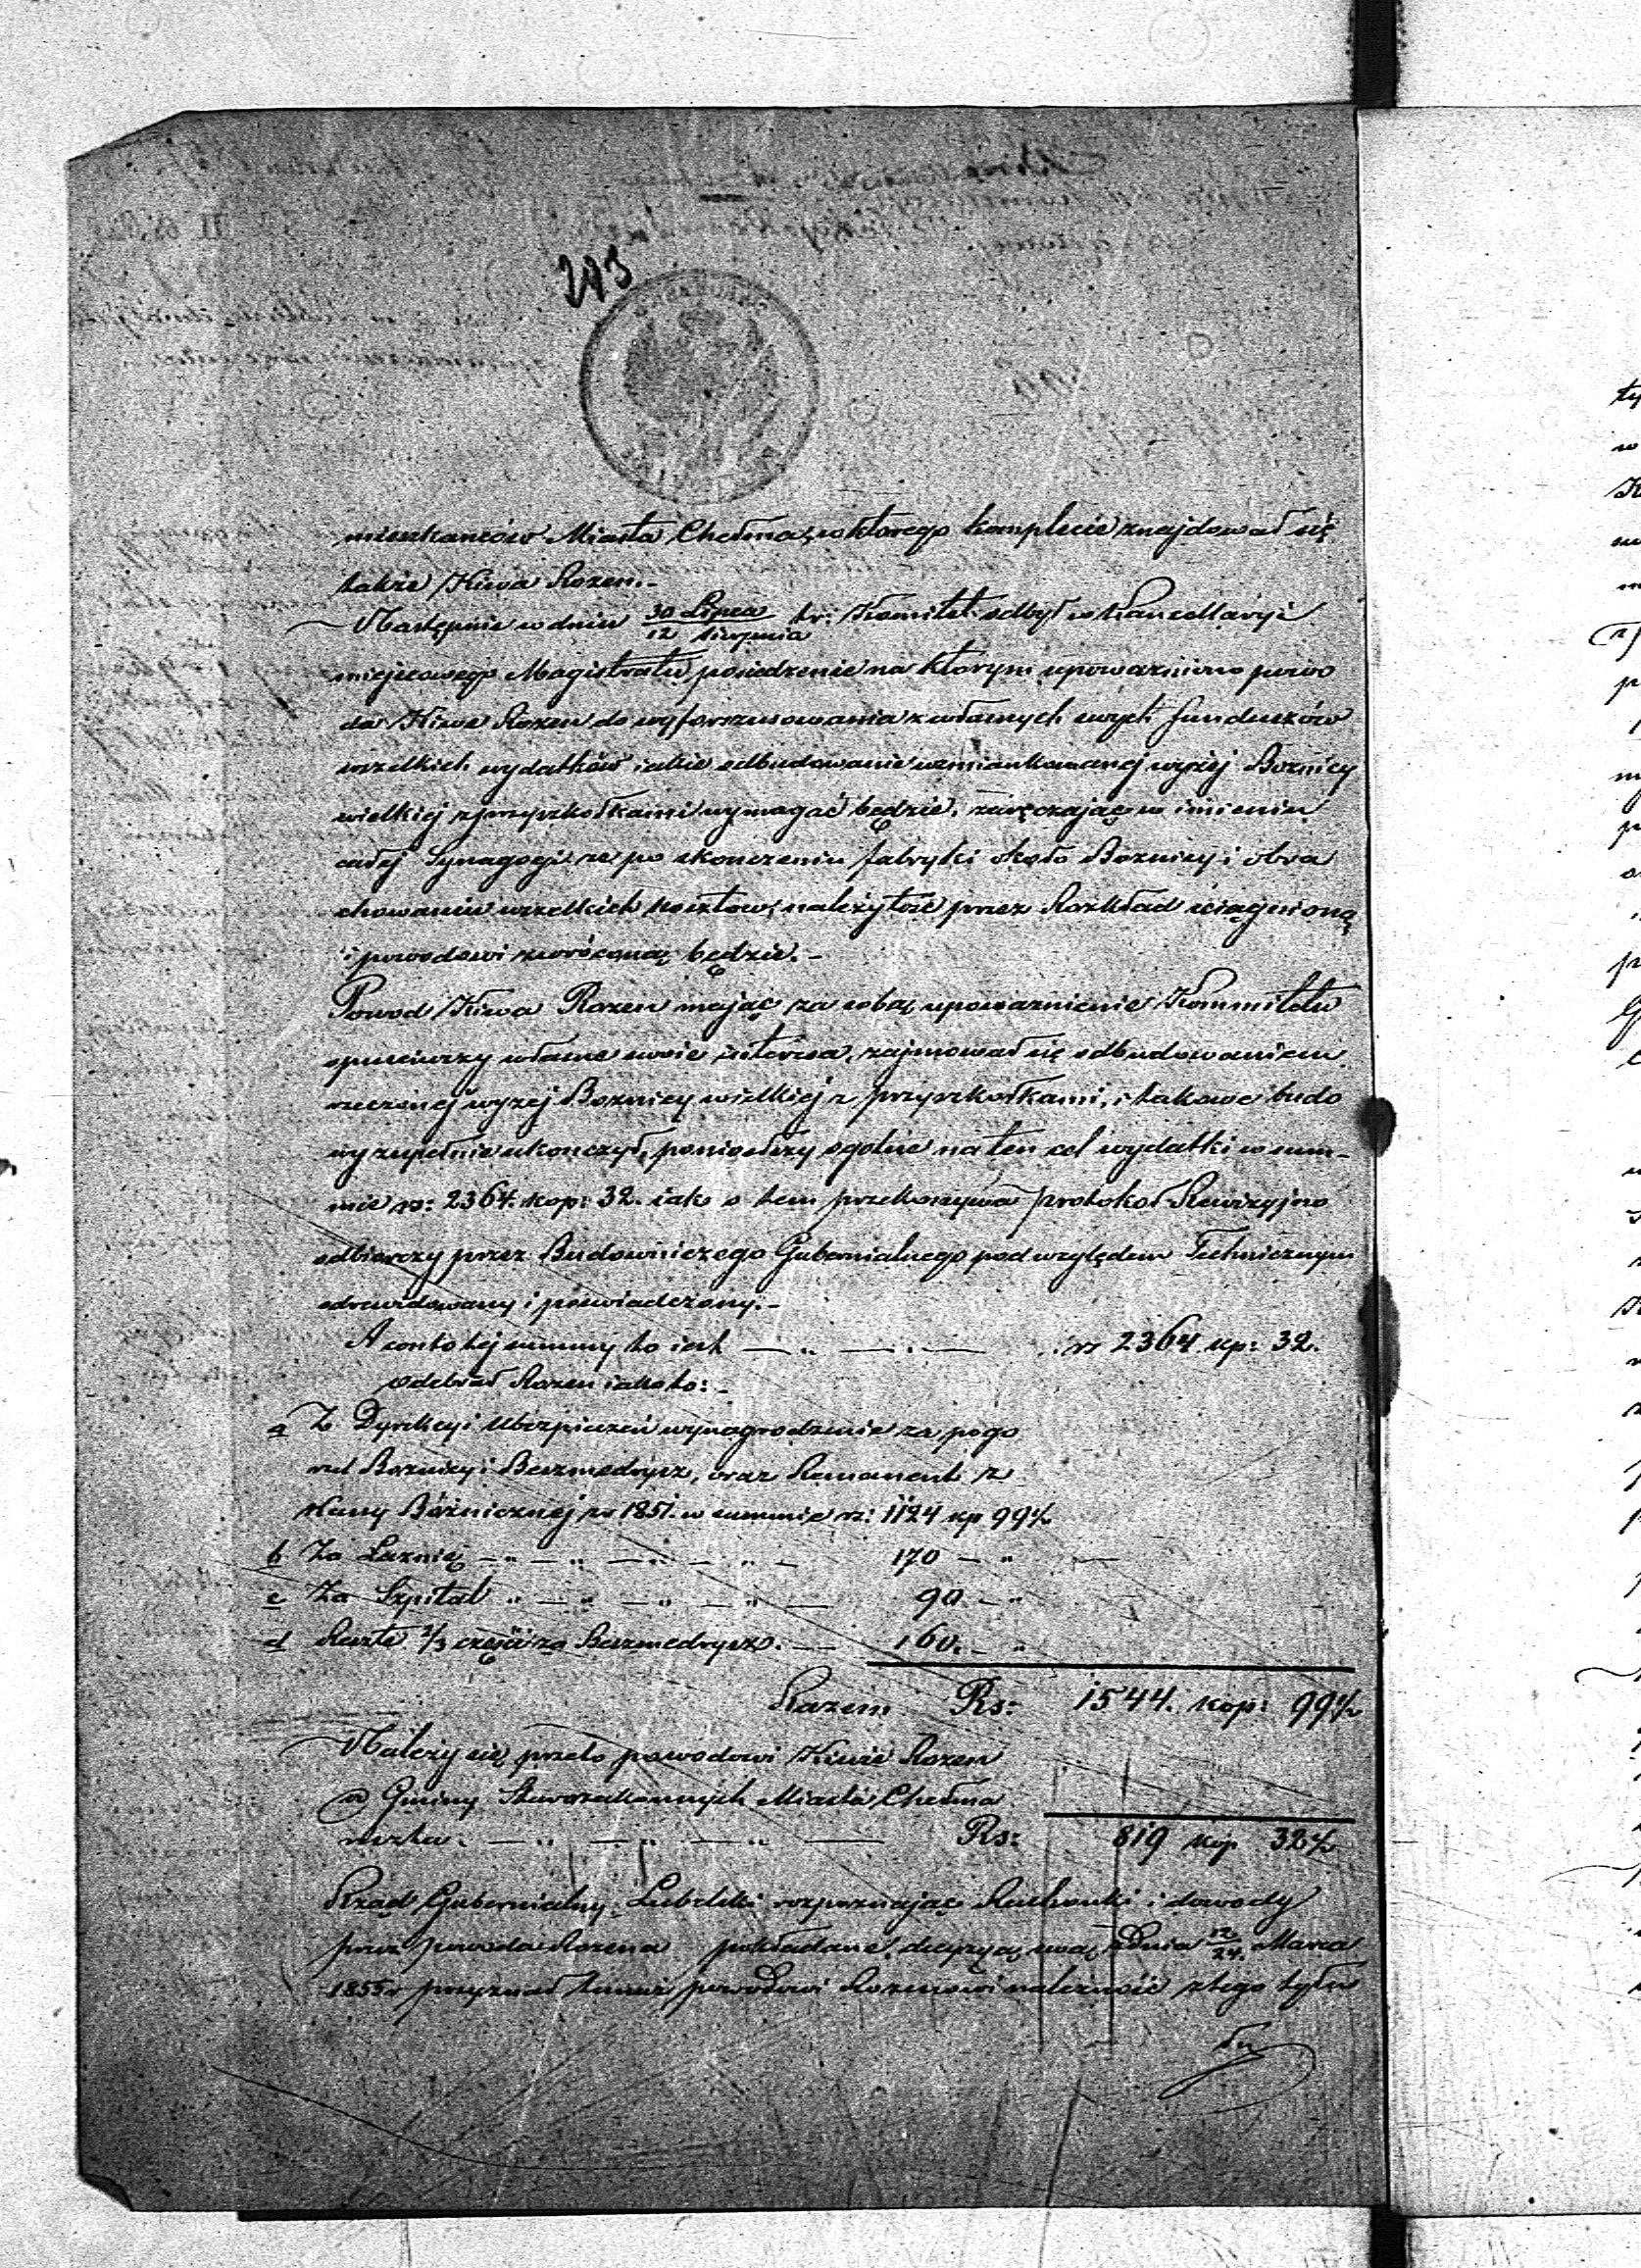 243
mieszkańców Miasta Chełma, w którego komplecie znajdował się
także Kiwa Rozen.-
Następnie w dniu 30 Lipca/12 Sierpnia tr: Komitet odbył w Kancellaryi
miejscowego Magistratu posiedzenie na którym upoważniono powo
da Kiwę Rozen do wyforszusowania z własnych swych funduszów
wszelkich wydatków iakie odbudowanie wzmiankowanej wyżej Bożnicy
wielkiej z przyszkołkami wymagać będzie, zaręczając w imieniu
całej Synagogi, że po skończeniu fabryki około Bożnicy i obra
chowaniu wszelkich kosztów, należytość przez Rozkład ściągnioną
i powodowi zwróconą będzie.-
Powod Kiwa Rozen mając za sobą upoważnienie Kommitetu
opuściwszy własne swoie interesa, zajmował się odbudowaniem
rzeczonej wyżej Bożnicy wielkiej z przyszkołkami, i takowe budo
wy zupełnie ukończył, poniosłszy ogólne na ten cel wydatki w sum-
mie rs: 2364. kop: 32. iak o tem przekonywa protokoł Rewizyjno
odbiorczy przez Budowniczego Gubernialnego pod względem Technicznym
odrewidowany i poświadczony.-
A conto tej summy to iest — „ — „ — rs 2364 kp: 32.
odebrał Rozen iako to:-
a Z Dyrekcyi Ubezpieczeń wynagrodzenie za pogo
rzel Bożnicy i Beszmedrysz, oraz Remanent z
Kassy Bóżnicznej za 1851. w summie rs: 1124 kp 99½
b Za Łaznię — „ — „ — „ — „ — 170 — „ —
c Za Szpital „ — „ — „ — „ — 90. — „
d Resztę 2/3 części za Beszmedrysz. — 160. — „
Razem Rs: 1544. kop: 99½
Należy się przeto powodowi Kiwie Rozen
od Gminy Starozakonnych Miasta Chełma
reszta. — „ — „ — „ — Rs: 819 kop 32½
Rząd Gubernialny Lubelski rozpoznając Rachunki i dowody
przez powoda Rozena pokładane, decyzyą swą z Dnia 12/24. Marca
1855 r przyznał temuż powodowi Rozenowi należność z tego tytu